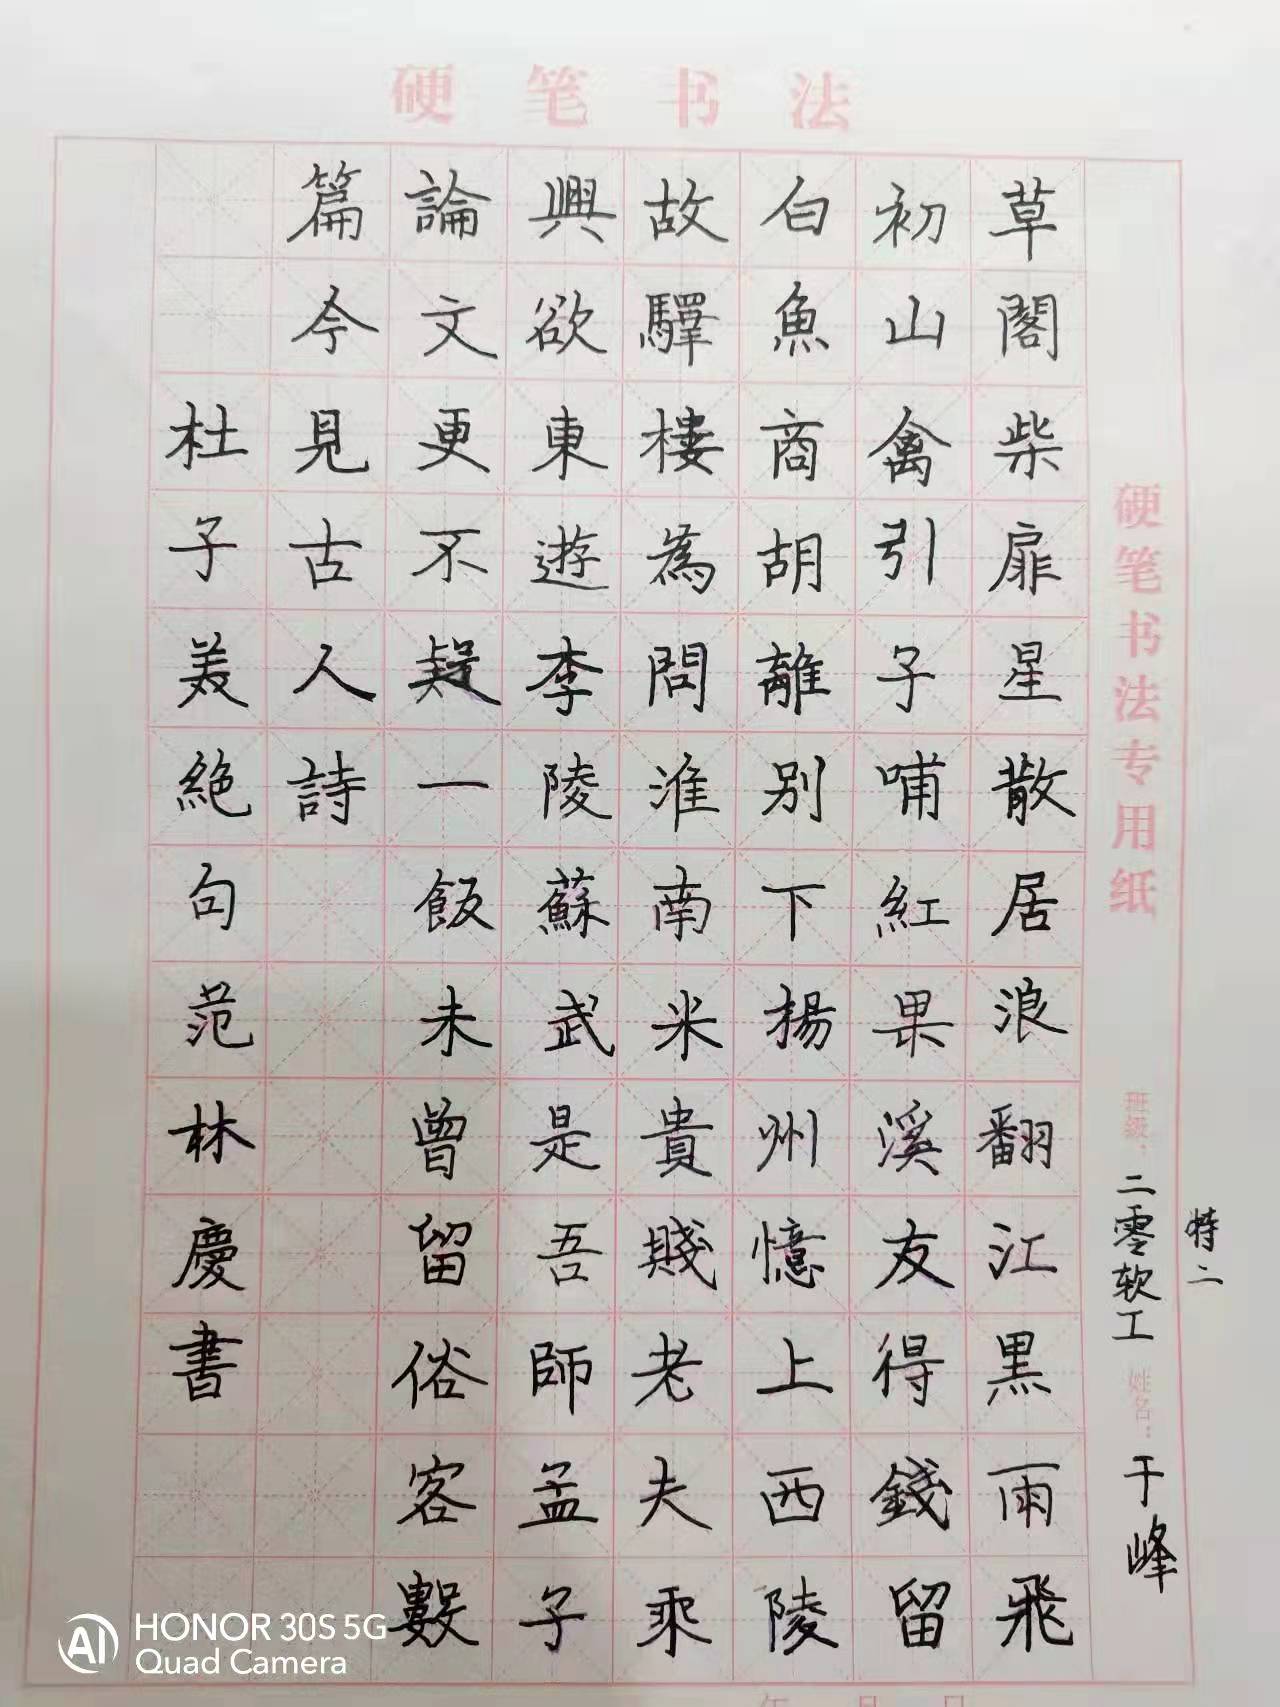 硬笔书法
草閣柴扉星散居浪翻江黑雨飛
初山禽引子哺紅果溪友得錢留
白魚商胡離別下楊州憶上西陵
故驛樓為問淮南米貴賤老夫乘
興欲東遊李陵蘇武是吾師孟子
論文更不疑一飯未曾留俗客數
篇今見古人詩
杜子美絶句范林慶書
硬笔书法专用纸
班级:二零软工
特二
姓名:于峰
年 月 日
HONOR 30S 5G
Quad Camera
AI